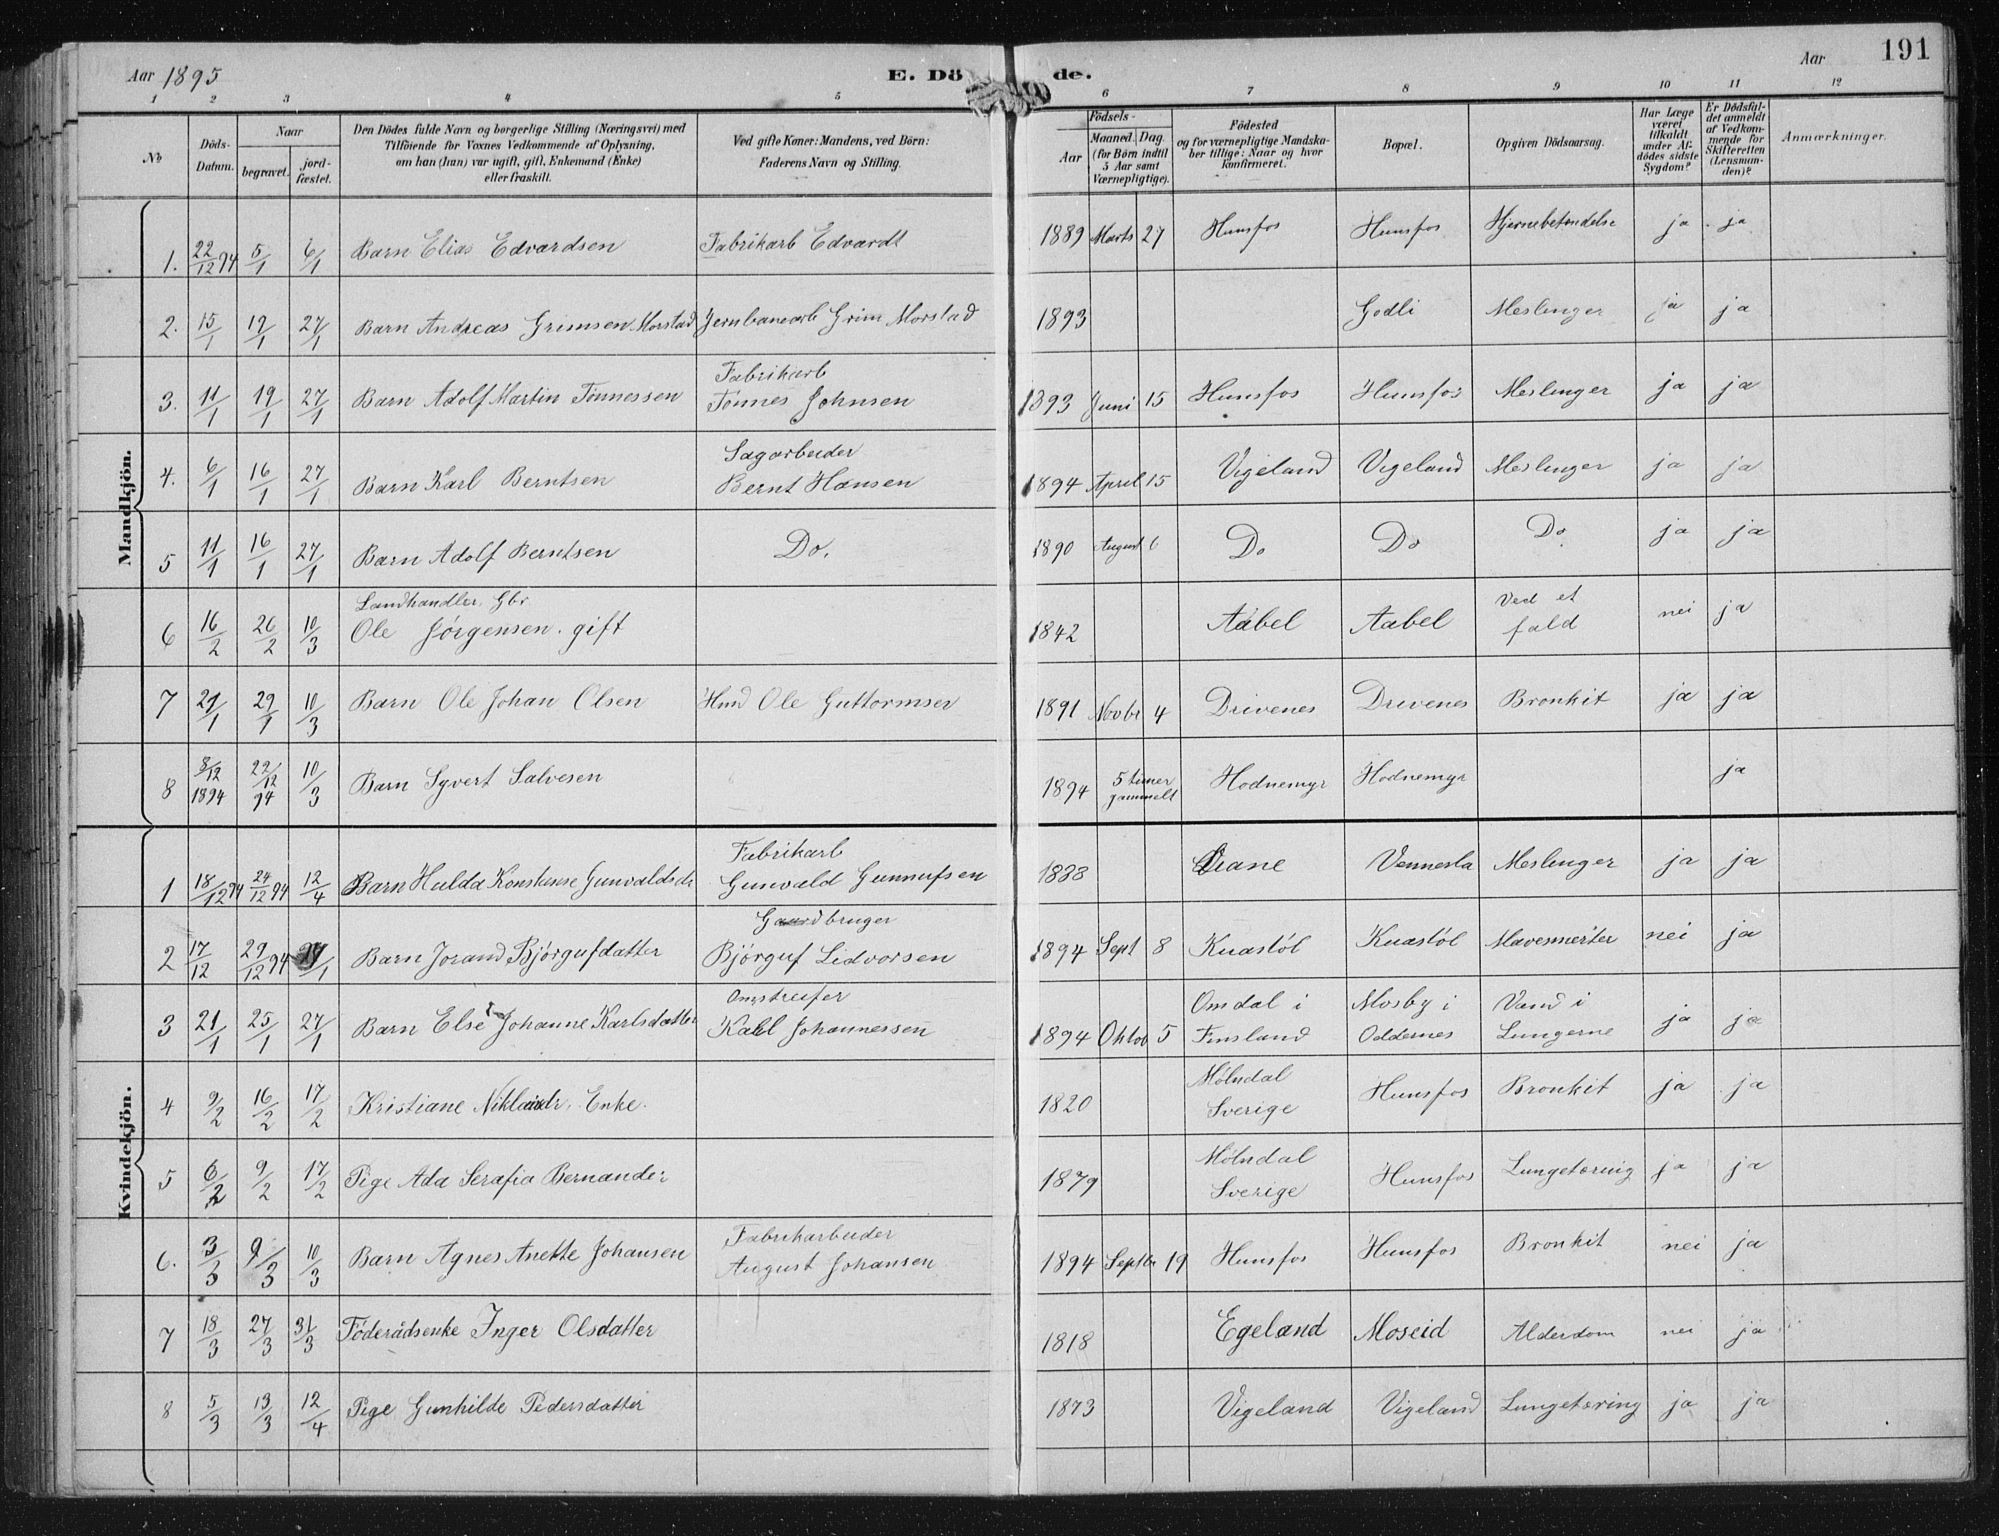 Aar 1895
E. Dö de.
Aar
191
1 2 3 4 5 6 7 8 9 10 11 12
No
Döds-Datum.
Naar
begravet.
jord-fæstet.
Den Dödes fulde Navn og borgerlige Stilling (Næringsvei) med
Tilföiende for Voxnes Vedkommende af Oplysning,
om han (hun) var ugift, gift, Enkemand (Enke)
eller fraskilt.
Ved gifte Koner: Mandens, ved Börn:
Faderens Navn og Stilling.
Födsels-
Aar
Maaned. Dag.
(for Börn indtil
5 Aar samt
Værnepligtige).
Födested
og for værnepligtige Mandska-
ber tillige: Naar og hvor
konfirmeret.
Bopæl.
Opgiven Dödsaarsag.
Har Læge
været
tilkaldt
under Af-
dödes sidste
Sygdom?
Er Dödsfal-
det anmeldt
af Vedkom-
mende for
Skifteretten
(Lensman-
den)?
Anmærkninger.
Mandkjön.
1. 22/12 94 5/1 6/1 Barn Elias Edvardsen Fabrikarb Edvardt 1889 Marts 27 Hunsfos Hunsfos Hjernebetændelse ja ja
2. 15/1 19/1 27/1 Barn Andreas Grimsen Morstad Jernbanearb Grim Morstad 1893 Godli Meslinger ja ja
3. 11/1 19/1 27/1 Barn Adolf Martin Tönnessen Fabrikarb
Tönnes Johnsen 1893 Juni 15 Hunsfos Hunsfos Meslinger ja ja
4. 6/1 16/1 27/1 Barn Karl Berntsen Sagarbeider
Bernt Hansen 1894 April 15 Vigeland Vigeland Meslinger ja ja
5 11/1 16/1 27/1 Barn Adolf Berntsen Do. 1890 August 6 Do Do Do ja ja
6 16/2 26/2 10/3 Landhandler, Gbr
Ole Jörgensen. gift 1842 Aabel Aabel Ved et
fald nei ja
7 21/1 29/1 10/3 Barn Ole Johan Olsen Hmd Ole Guttormsen 1891 Novbr 4 Drivenes Drivenes Bronkit ja ja
8 8/12 1894 22/12 94 10/3 Barn Syvert Salvesen 1894 5 timer
gammelt Hodnemyr Hodnemyr ja
Kvindekjön.
1 18/12 94 24/12 94 12/4 Barn Hulda Konstanse Gunvaldsdr Fabrikarb
Gunvald Gunnufsen 1888 Viane Vennesla Meslinger ja ja
2 17/12 29/12 94 Barn Jorand Björgufdatter Gaardbruger
Björguf Lidvorsen 1894 Sept 8 Kuastöl Kuastöl nei ja
3 21/1 25/1 27/1 Barn Else Johanne Karlsdatter Omstreifer
Karl Johannessen 1894 Oktob 5 Omdal i
Finsland Mosby i
Oddernes Vand i
Lungerne ja ja
4 9/2 16/2 17/2 Kristiane Enke. 1820 Mölndal
Sverige Hunsfos Bronkit ja ja
5 6/2 9/2 17/2 Pige Ada Serafia Bernander 1879 Mölndal
Sverige Hunsfos Lungetæring ja ja
6. 3/3 9/3 10/3 Barn Agnes Anette Johansen Fabrikarbeider
August Johansen 1894 Septbr 19 Hunsfos Hunsfos Bronkit nei ja
7 18/3 27/3 31/3 Föderådsenke Inger Olsdatter 1818 Egeland Moseid Alderdom nei ja
8 5/3 13/3 12/4 Pige Gunhilde Pedersdatter 1873 Vigeland Vigeland Lungetæring ja ja